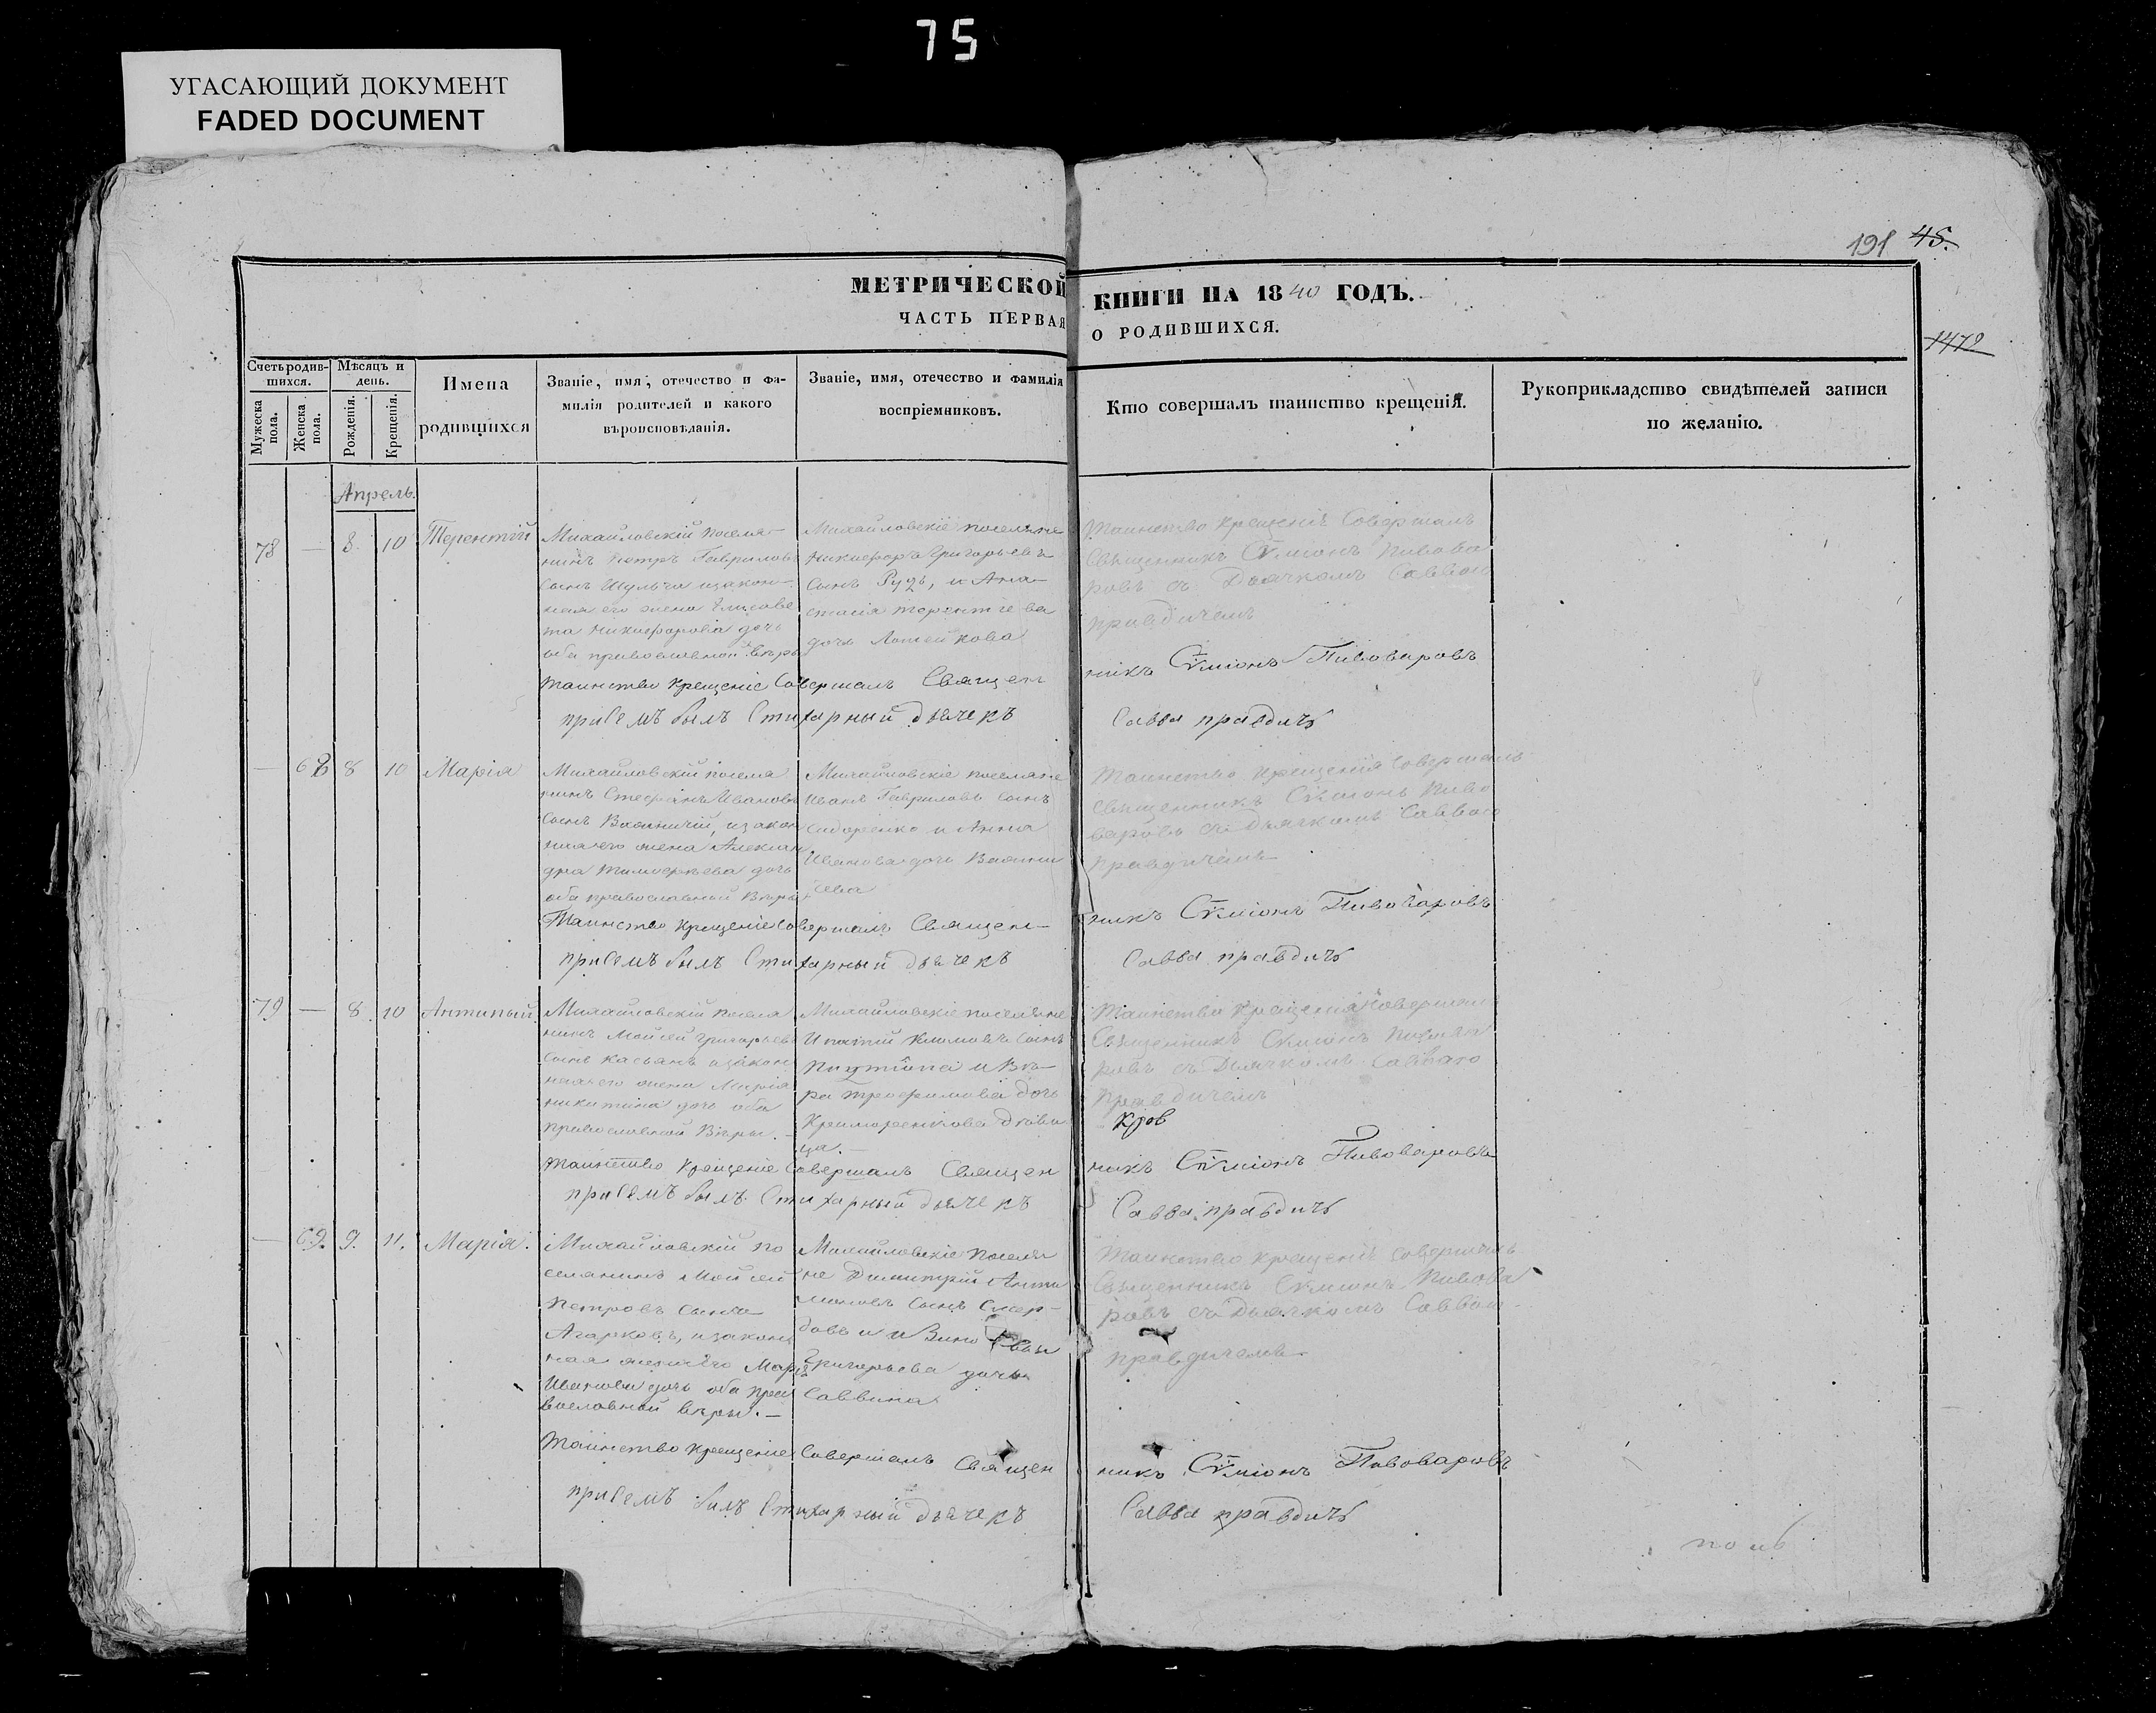 75
УГАСАЮЩИЙ ДОКУМЕНТ
FADED DOCUMENT
191 45.
МЕТРИЧЕСКОЙ КНИГИ НА 1840 ГОДЪ.
ЧАСТЬ ПЕРВАЯ О РОДИВШИХСЯ.
1472
Счетъ родив-
шихся.
Мужеска
пола.
Женска
пола.
Мѣсяцъ и
день.
Рожденія.
Крещенія.
Имена
родившихся
Званіе, имя, отечество и фа-
милія родителей и какого
вѣроисповѣданія.
Званіе, имя, отечество и фамилія
воспріемниковъ.
Кто совершалъ таинство крещенія.
Рукоприкладство свидѣтелей записи
по желанію.
Апрель.
78 — 8 10 Терентій
Михайловскій поселя-
нинъ Петръ Гавриловъ
сынъ Шульга и закон-
ная его жена Елисаве
та Никифорова дочь
оба православной вѣры
Михайловскіе поселяне
Никифоръ Григорьевъ
сынъ Рудь, и Ана-
стасія Терентіева
дочь
Таинство крещенія совершалъ
Священникъ Сѵміонъ Пивова
ровъ съ Дьячкомъ Саввою
Правдичемъ
Таинство крещеніе совершалъ Священ
никъ Сѵміонъ Пивоваровъ
при семъ былъ Стихарный дьячекъ
Савва Правдичъ
— 68 8 10 Марія
Михайловскій поселя
нинъ Стефанъ Ивановъ
сынъ и закон
ная его жена Алексан
дра Тимофеева дочь
оба православной вѣры
Михайловскіе поселяне
Иванъ Гавриловъ сынъ
Сидоренко и Анна
Иванова дочь
Таинство крещенія совершалъ
священникъ Сѵміонъ Пиво
варовъ съ Дьячкомъ Саввою
Правдичемъ
Таинство крещеніе совершалъ Священ-
никъ Сѵміонъ Пивоваровъ
при семъ былъ Стихарный дьячекъ
Савва Правдичъ
79 — 8 10 Антипый
Михайловскій поселя
нинъ Мойсей Григорьевъ
сынъ Касьянъ и закон
ная его жена Марія
Никитина дочь оба
православной вѣры.
Михайловскіе поселяне
Ипатій Климовъ сынъ
и Вѣ-
ра Трофимова дочь
дѣви
ца.
Таинство крещенія совершалъ
Священникъ Сѵміонъ Пивова
ровъ съ Дьячкомъ Саввою
Правдичемъ
Кров
Таинство крещеніе совершалъ Священ
никъ Сѵміонъ Пивоваровъ
при семъ былъ Стихарный дьячекъ
Савва Правдичъ
— 69. 9. 11. Марія.
Михайловскій по
селянинъ Мойсей
Петровъ сынъ
Агарковъ, и закон
ная жена его Марія
Иванова дочь оба пра
вославной вѣры.—
Михайловскіе поселя
не Димитрій
сынъ
Григорьева дочь
Саввина
Таинство крещенія совершалъ
Священникъ Сѵміонъ Пивова
ровъ съ Дьячкомъ Саввою
Правдичемъ
Таинство крещеніе совершалъ Священ
никъ Сѵміонъ Пивоваровъ
при семъ былъ Стихарный дьячекъ
Савва Правдичъ